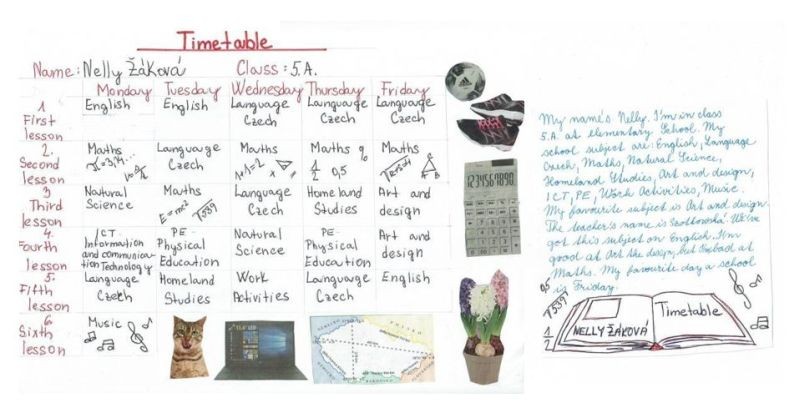 Timetable
Name: Nelly Žáková Class: 5.A.
Monday Tuesday Wednesday Thursday Friday
1
First lesson
English
English
Language Czech
Language Czech
Language Czech
2.
Second lesson
Maths
Language Czech
Maths
1+1=2
Maths %
1/2 0,5
Maths
3
Third lesson
Natural Science
Maths
E=mc²
Language Czech
Homeland Studies
Art and design
4.
Fourth lesson
ICT
Information and communication Technology
PE-
Physical Education
Natural Science
PE-
Physical Education
Art and design
5.
Fifth lesson
Language Czech
Homeland Studies
Work Activities
Language Czech
English
6
Sixth lesson
Music
1234567890
My name's Nelly. I'm in class
5.A. at elementary School. My
school subject are: English, Language
Czech, Maths, Natural Science,
Homeland Studies, Art and design,
ICT, PE, Work Activities, Music.
My favourite subject is Art and design.
The teacher's name is We've
got this subject on English. I'm
good at Art the design, but bad at
Maths. My favourite day a school
is Friday.
1/2
NELLY ŽÁKOVÁ
Timetable